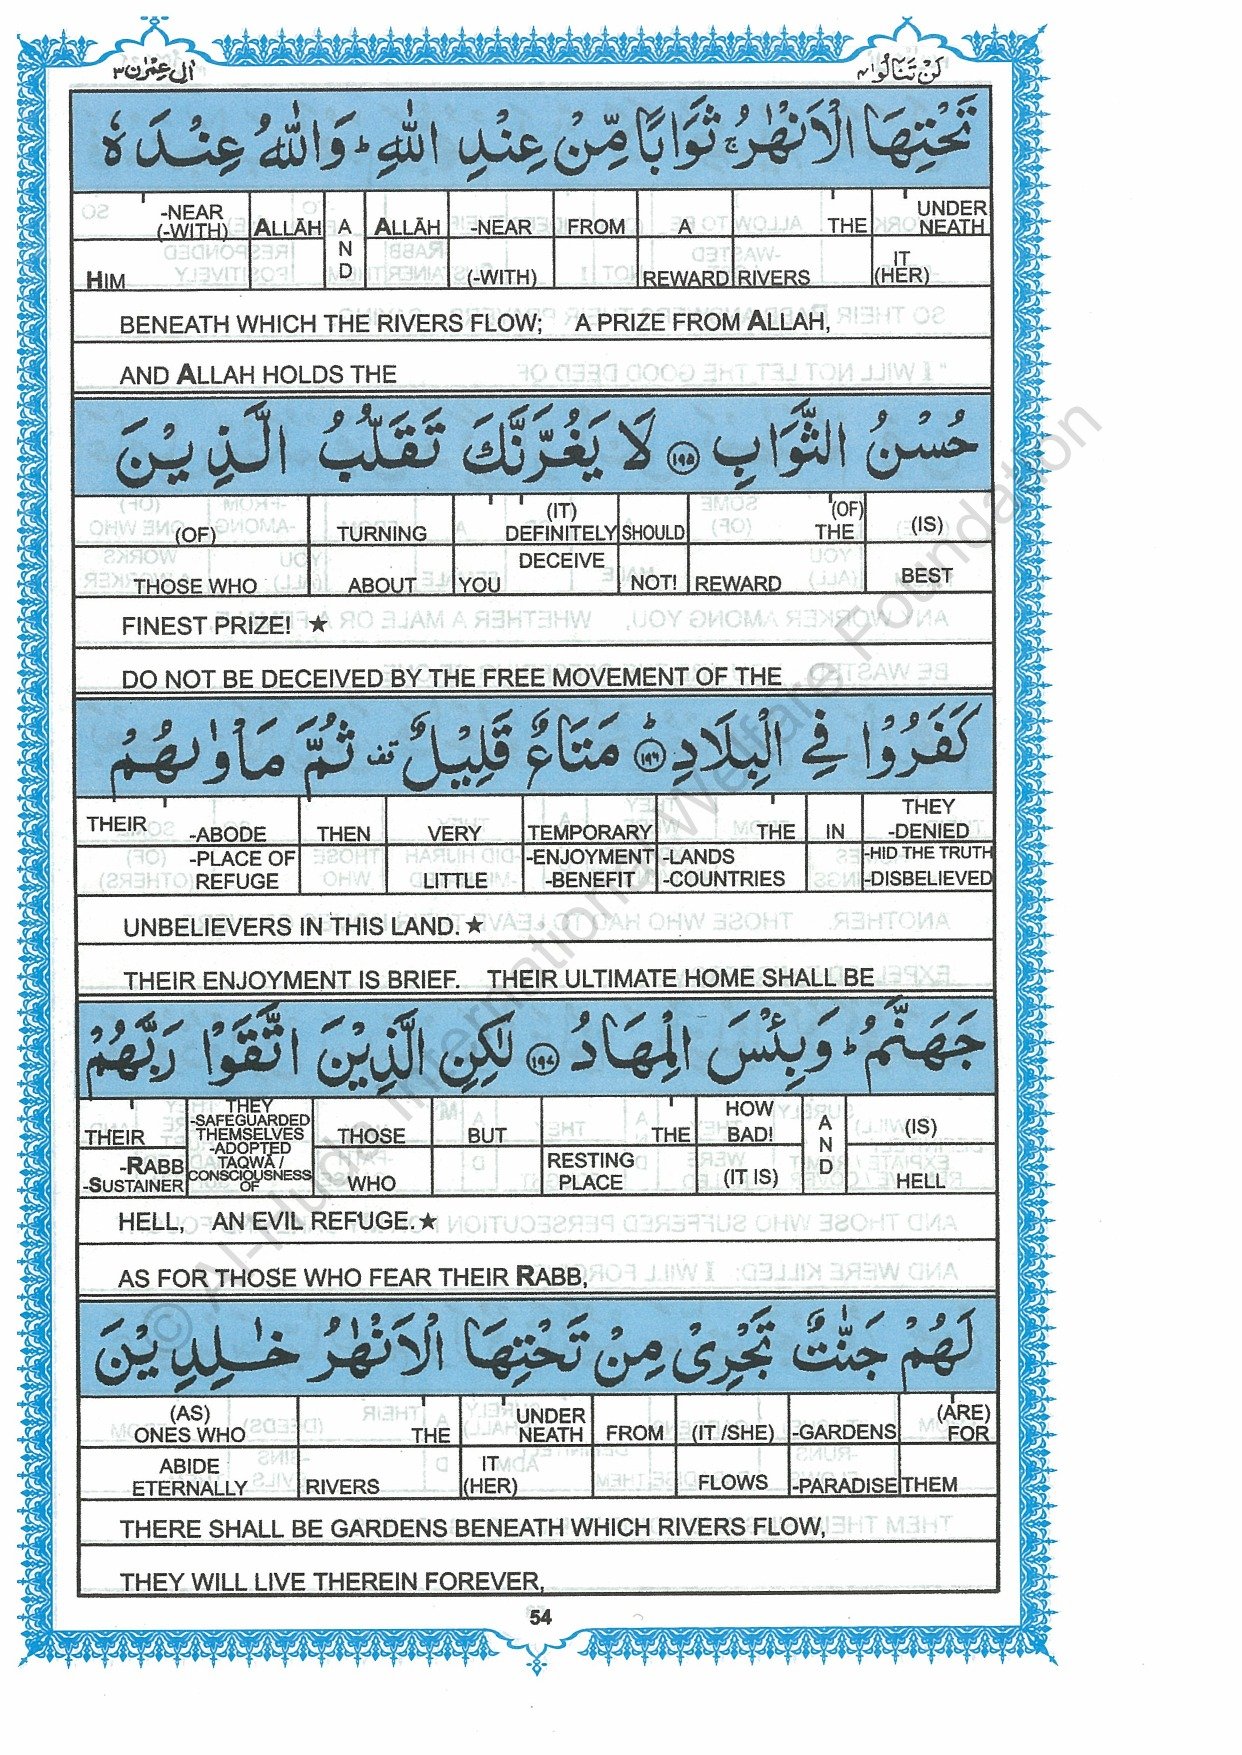 اٰلِ عِمْرٰن ٣
لَنْ تَنَالُوا ٤
تَحْتِهَا الْاَنْهٰرُ ۚ ثَوَابًا مِّنْ عِنْدِ اللّٰهِ ؕ وَاللّٰهُ عِنْدَهٗ
-NEAR ALLĀH AND ALLĀH -NEAR FROM A THE UNDER
(-WITH) NEATH
HIM (-WITH) REWARD RIVERS IT (HER)
BENEATH WHICH THE RIVERS FLOW; A PRIZE FROM ALLAH,
AND ALLAH HOLDS THE
حُسْنُ الثَّوَابِ ۝١٩٥ لَا يَغُرَّنَّكَ تَقَلُّبُ الَّذِيْنَ
(OF) TURNING (IT) DEFINITELY SHOULD (OF) THE (IS)
THOSE WHO ABOUT YOU DECEIVE NOT! REWARD BEST
FINEST PRIZE! ★
DO NOT BE DECEIVED BY THE FREE MOVEMENT OF THE
كَفَرُوْا فِي الْبِلَادِ ؕ ۝١٩٦ مَتَاعٌ قَلِيْلٌ قف ثُمَّ مَاْوٰىهُمْ
THEIR -ABODE THEN VERY TEMPORARY THE IN THEY -DENIED
-PLACE OF REFUGE LITTLE -ENJOYMENT -BENEFIT -LANDS -COUNTRIES -HID THE TRUTH -DISBELIEVED
UNBELIEVERS IN THIS LAND. ★
THEIR ENJOYMENT IS BRIEF. THEIR ULTIMATE HOME SHALL BE
جَهَنَّمُ ؕ وَبِئْسَ الْمِهَادُ ۝١٩٧ لٰكِنِ الَّذِيْنَ اتَّقَوْا رَبَّهُمْ
THEIR THEY -SAFEGUARDED THEMSELVES -ADOPTED TAQWĀ / CONSCIOUSNESS OF THOSE BUT THE HOW BAD! AND (IS)
-RABB -SUSTAINER WHO RESTING PLACE (IT IS) HELL
HELL, AN EVIL REFUGE. ★
AS FOR THOSE WHO FEAR THEIR RABB,
لَهُمْ جَنّٰتٌ تَجْرِيْ مِنْ تَحْتِهَا الْاَنْهٰرُ خٰلِدِيْنَ
(AS) ONES WHO THE UNDER NEATH FROM (IT /SHE) -GARDENS (ARE) FOR
ABIDE ETERNALLY RIVERS IT (HER) FLOWS -PARADISE THEM
THERE SHALL BE GARDENS BENEATH WHICH RIVERS FLOW,
THEY WILL LIVE THEREIN FOREVER,
54
© Al-Huda International Welfare Foundation